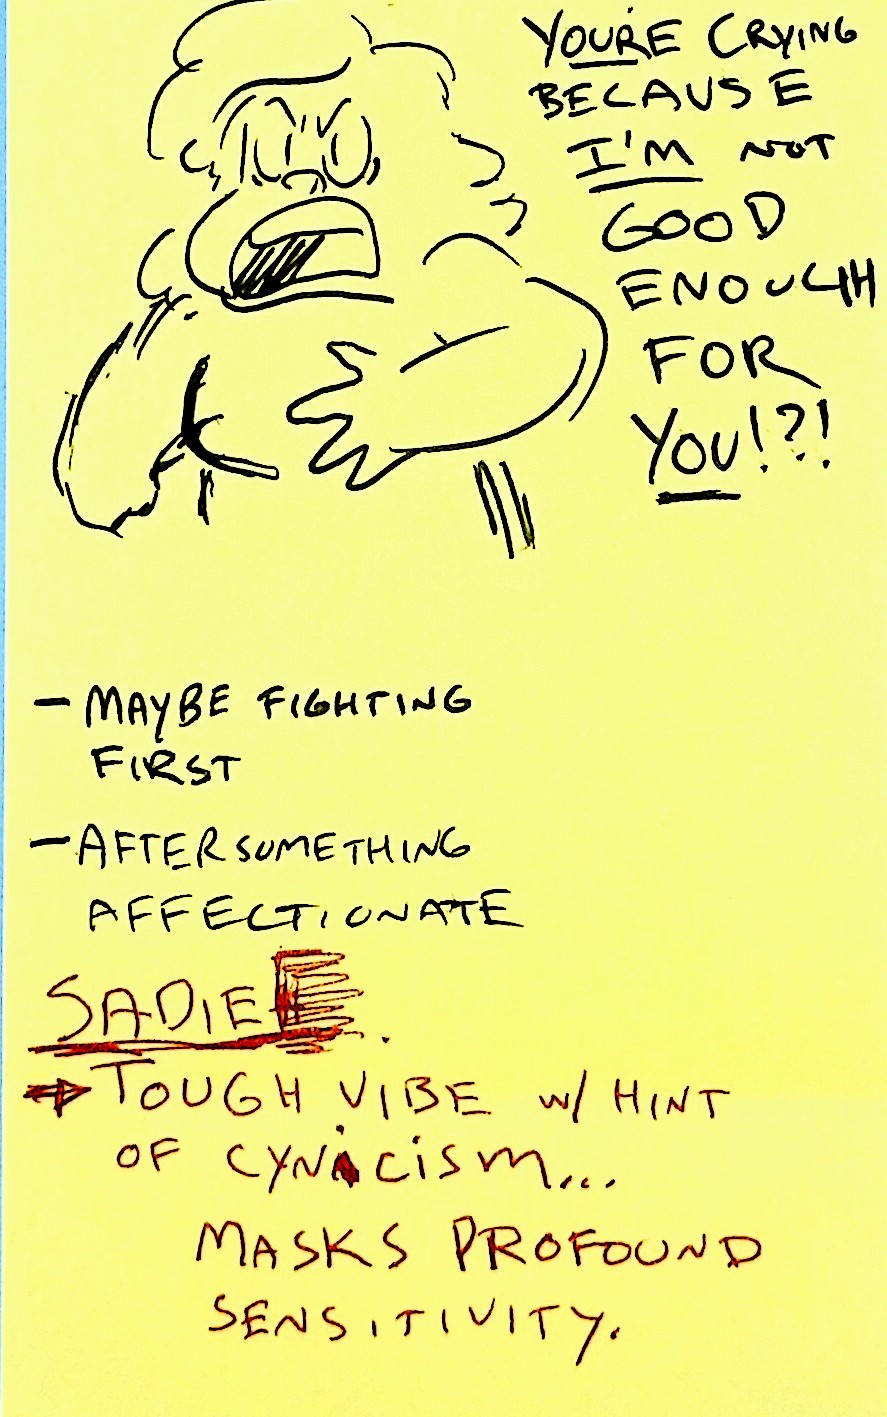 YOU'RE CRYING
BECAUSE
I'M NOT
GOOD
ENOUGH
FOR
YOU!?!
- MAYBE FIGHTING
FIRST
- AFTER SOMETHING
AFFECTIONATE
SADIE
→ TOUGH VIBE w/ HINT
OF CYNiCiSM...
MASKS PROFOUND
SENSITIVITY.